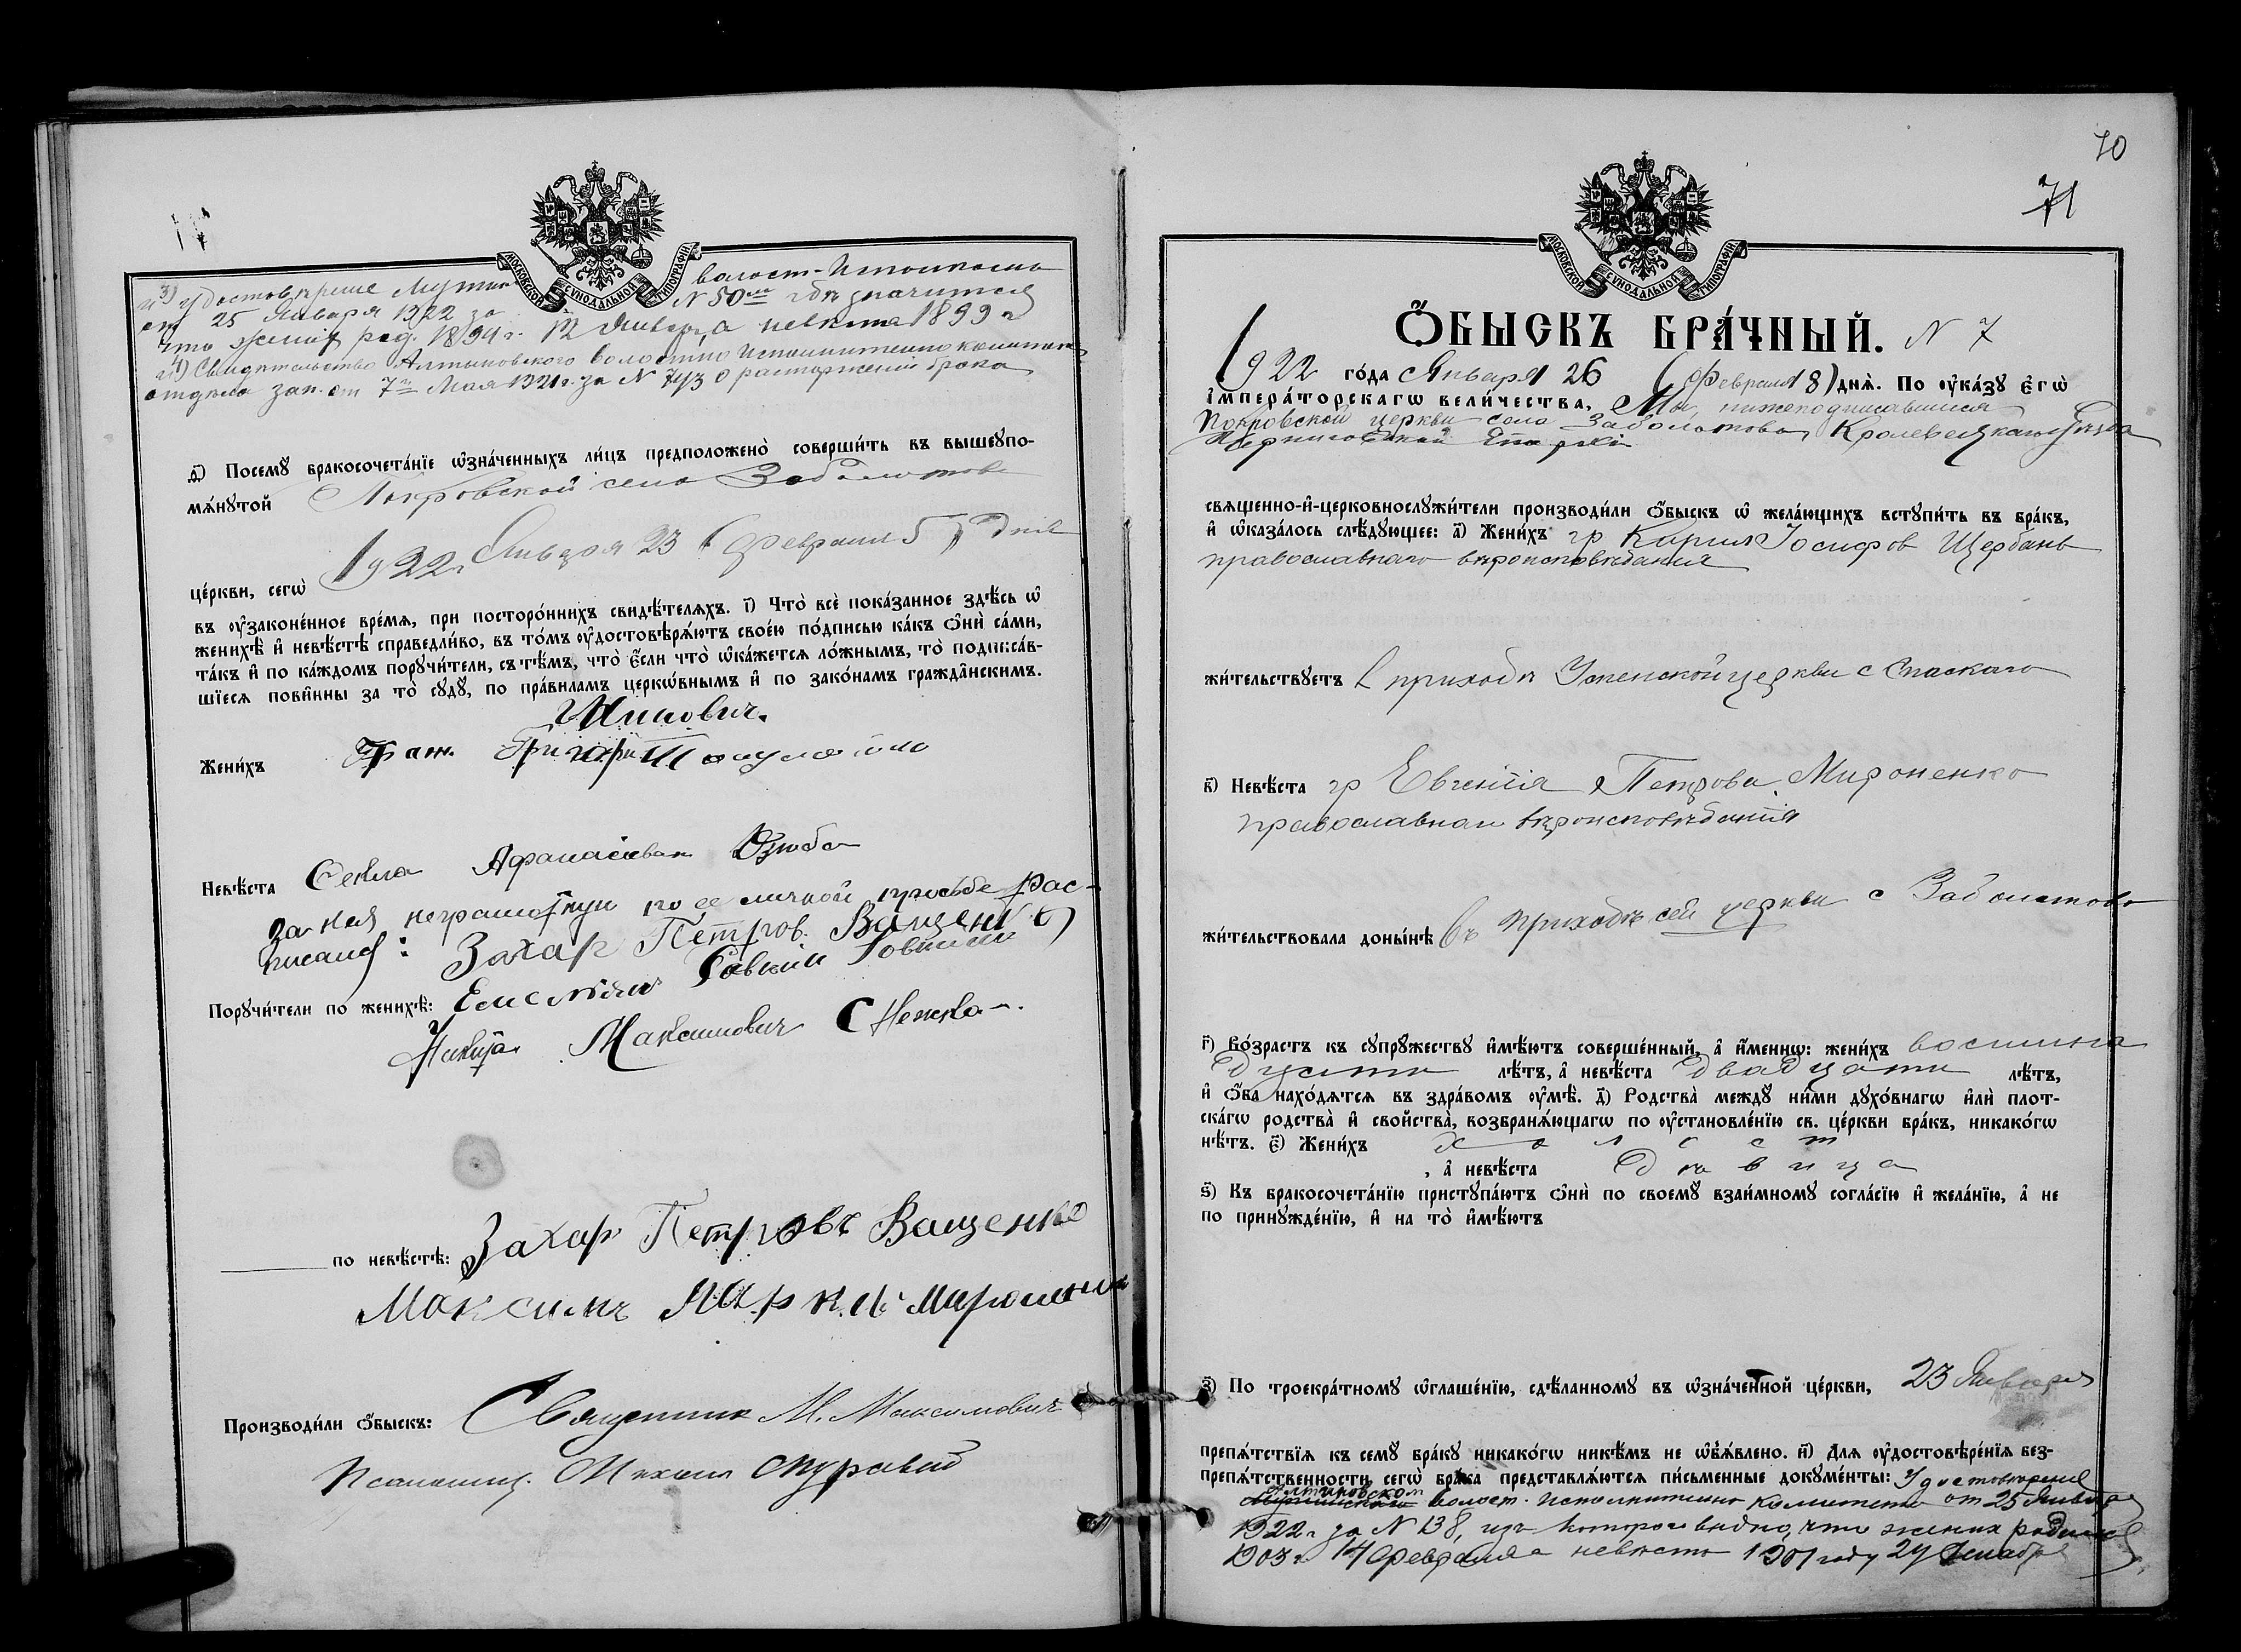 МОСКОВСКОЙ СѴНОДАЛЬНОЙ ТИПОГРАФІИ
волост-Исполкома
от 25 Января 1922 за № 50 гдѣ значится
что жених род. 1894 г. 12 Января, а невѣста 1899 г
4) Свидѣтельство Алтыновского Исполнительно
отдѣла зап. от 7 Мая 1921 г. за № о расторжении брака
д҃) Посемꙋ̀ бракосочета́нїе ѡ҆зна́ченныхъ ли́цъ предположено̀ соверши́ть въ вышеꙋпо-
мѧ́нꙋтой Покровской села Заболотово
1922 г. Января 23 (февраля 5) дня
це́ркви, сегѡ̀
въ оу҆законе́нное вре́мѧ, при посторо́ннихъ свидѣ́телѧхъ. і҃) Что̀ всѐ пока́занное здѣ́сь ѡ҆
женихѣ̀ и҆ невѣ́стѣ справедли́во, въ то́мъ оу҆достовѣрѧ́ютъ свое́ю по́дписью ка́къ ѻ҆нѝ са́ми,
та́къ и҆ по ка́ждомъ порꙋчи́тели, съ тѣ́мъ, что̀ є҆́сли что̀ ѡ҆ка́жетсѧ ло́жнымъ, то̀ подписа́в-
шїесѧ пови́нны за то̀ сꙋдꙋ̀, по пра́виламъ церкѡ́внымъ и҆ по зако́намъ гражда̑нскимъ.
Жени́хъ Граж. Григорій
Невѣ́ста Текла Афанасиевна Дзюба
за нея неграмотную по ее личной просьбе рас-
писался: Захар Петров. Ващенко
Порꙋчи́тели по женихѣ̀: Емельян
Никита Максимович
по невѣ́стѣ: Захар Петровъ Ващенко
Максимъ
Производи́ли ѻ҆́быскъ: Священник М. Максимович
Псаломщ. Михаил Журавий
70
71
МОСКОВСКОЙ СѴНОДАЛЬНОЙ ТИПОГРАФІИ
Ѻ҆́БЫСКЪ БРА́ЧНЫЙ. № 7
1922 го́да Января 26 (февраля 8) днѧ̀. По оу҆ка́зꙋ є҆гѡ̀
і҆мпера́торскагѡ вели́чества, Мы, нижеподписавшиеся
Покровской церкви села Заболотова, Кролевецкаго уезда
Черниговской Епархіи
свѧще́нно-и҆-церковнослꙋжи́тели производи́ли ѻ҆́быскъ ѡ҆ жела́ющихъ встꙋпи́ть въ бра́къ,
и҆ ѡ҆каза́лось слѣ́дꙋющее: а҃) Жени́хъ гр Карпъ Іосифов Щербань
православнаго вѣроисповѣданія
жи́тельствꙋетъ в приходѣ Успенской церкви с Спаскаго
в҃) Невѣ́ста гр Евгенія Петрова Мироненко
православнаго вѣроисповѣданія
жи́тельствовала доны́нѣ въ приходѣ сей церкви с Заболотово
г҃) Во́зрастъ къ сꙋпрꙋ́жествꙋ и҆мѣ́ютъ соверше́нный, а҆ и҆́меннѡ: жени́хъ восемна
дцати лѣ́тъ, а҆ невѣ́ста двадцати лѣ́тъ,
и҆ ѻ҆́ба нахо́дѧтсѧ въ здра́вомъ оу҆мѣ̀. д҃) Родства̀ междꙋ̀ ни́ми дꙋхо́внагѡ и҆лѝ плот-
ска́гѡ родства̀ и҆ свойства̀, возбранѧ́ющагѡ по оу҆становле́нїю св. це́ркви бра́къ, никако́гѡ
нѣ́тъ. є҃) Жени́хъ холост
, а҆ невѣ́ста дѣвица
ѕ҃) Къ бракосочета́нїю пристꙋпа́ютъ ѻ҆нѝ по своемꙋ̀ взаи́мномꙋ согла́сїю и҆ жела́нїю, а҆ не
по принꙋжде́нїю, и҆ на то̀ и҆мѣ́ютъ
з҃) По троекра́тномꙋ ѡ҆глаше́нїю, сдѣ́ланномꙋ въ ѡ҆зна́ченной це́ркви, 23 Января
препѧ́тствїѧ къ семꙋ̀ бра́кꙋ никако́гѡ никѣ́мъ не ѡ҆б̾ѧ́влено. и҃) Длѧ оу҆достовѣре́нїѧ без-
препѧ́тственности сегѡ̀ бра́ка представлѧ́ютсѧ пи́сьменные докꙋме́нты: Удостоверение
Алтиновском
волост. исполнительно комитета от 25 Января
1922 г за № 138, изъ котораго видно, что жених родился
1903 г. 14 февраля а невеста 1901 году 24 Декабря